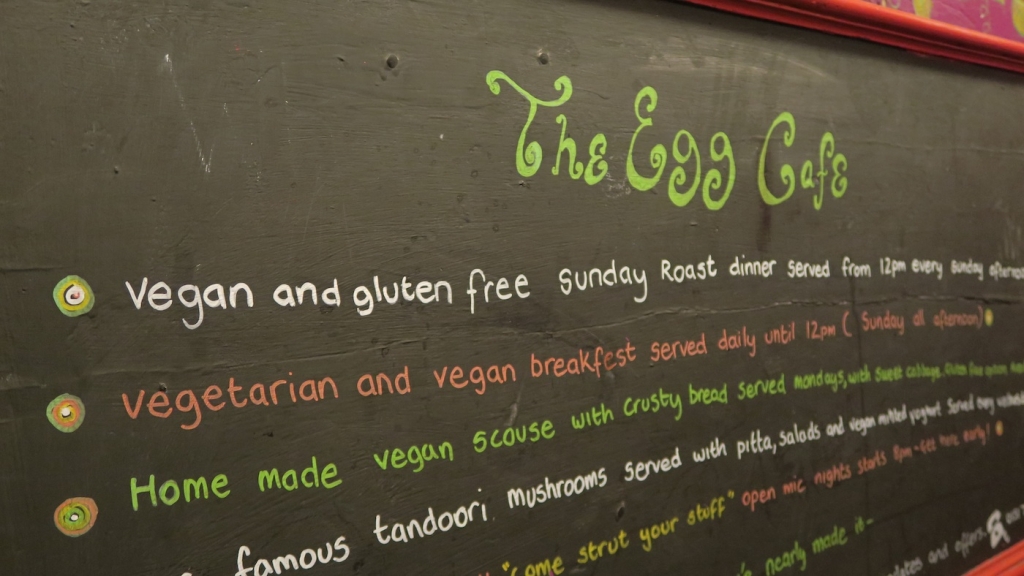 The Egg Cafe
Vegan and gluten free Sunday Roast dinner served from 12pm every sunday
Vegetarian and vegan breakfast served daily until 12pm ( Sunday all afternoon)
Home made vegan scouse with crusty bread served mondays, with sweet cabbage, gluten free option
famous tandoori mushrooms served with pitta, salads and vegan minted yoghurt served every
"come strut your stuff" open mic nights starts 8pm - get here early!
nearly made it-
and offers